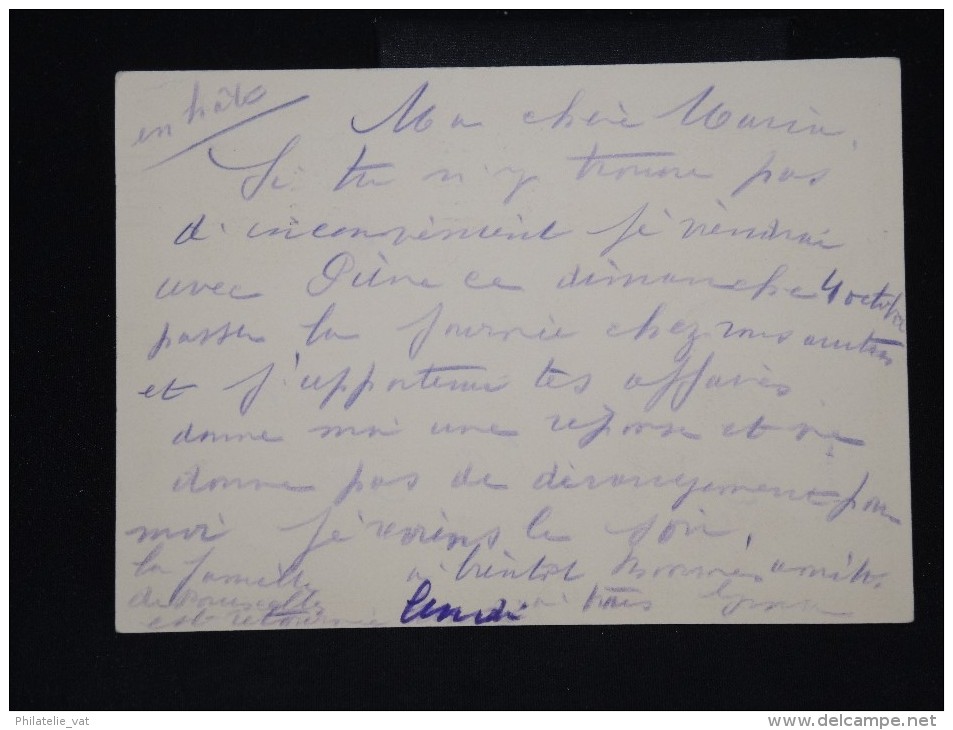 en hâte
Ma chère Maria,
Si tu n'y trouve pas
d'inconvénient je viendrai
avec Pière ce dimanche 4 octobre
passer la journée chez vous autres
et j'apporterai tes affaires
donne moi une réponse et ne
donne pas de dérangement pour
moi je reviens le soir,
la famille à bientôt amitié,
de Bruxelles tous
est retournée lundi
Philatelie_vat
www.delcampe.net